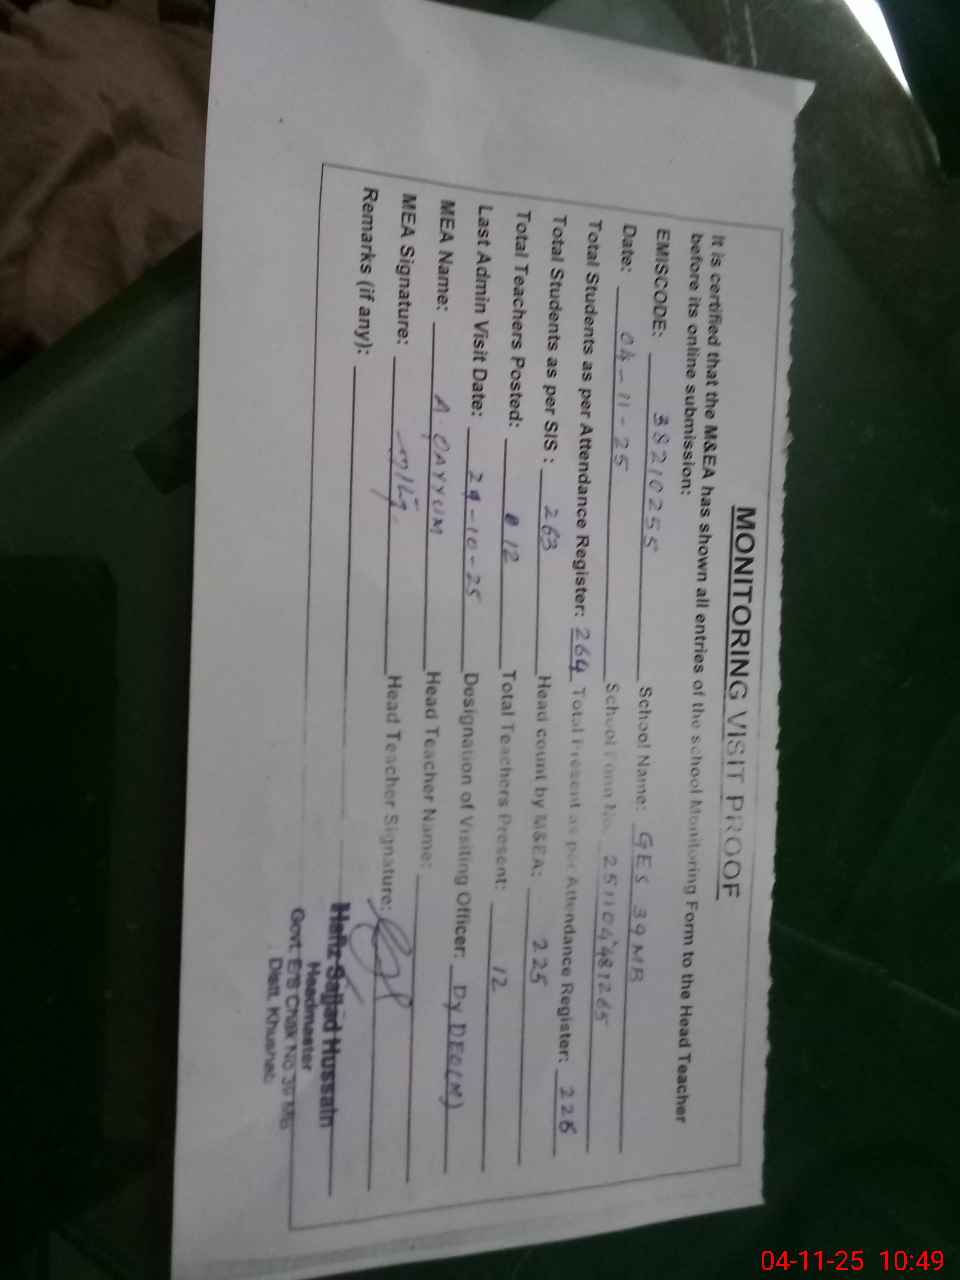 MONITORING VISIT PROOF
It is certified that the M&EA has shown all entries of the school Monitoring Form to the Head Teacher
before its online submission:
EMISCODE: 38210255 School Name: GES 39 MB
Date: 04-11-25 School Form No. 251104481265
Total Students as per Attendance Register: 264 Total Present as per Attendance Register: 225
Total Students as per SIS : 263 Head count by M&EA: 225
Total Teachers Posted: 12 Total Teachers Present: 12
Last Admin Visit Date: 29-10-25 Designation of Visiting Officer: Dy DEO(M)
MEA Name: A. QAYYUM Head Teacher Name:
MEA Signature: Head Teacher Signature:
Remarks (if any):
Hafiz Sajjad Hussain
Headmaster
Govt. E/S Chak No 39 MB
Distt. Khushab
04-11-25 10:49